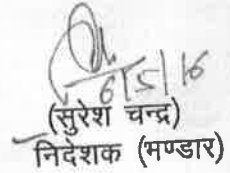 6/5/16
(सुरेश चन्द्र)
निदेशक (भण्डार)